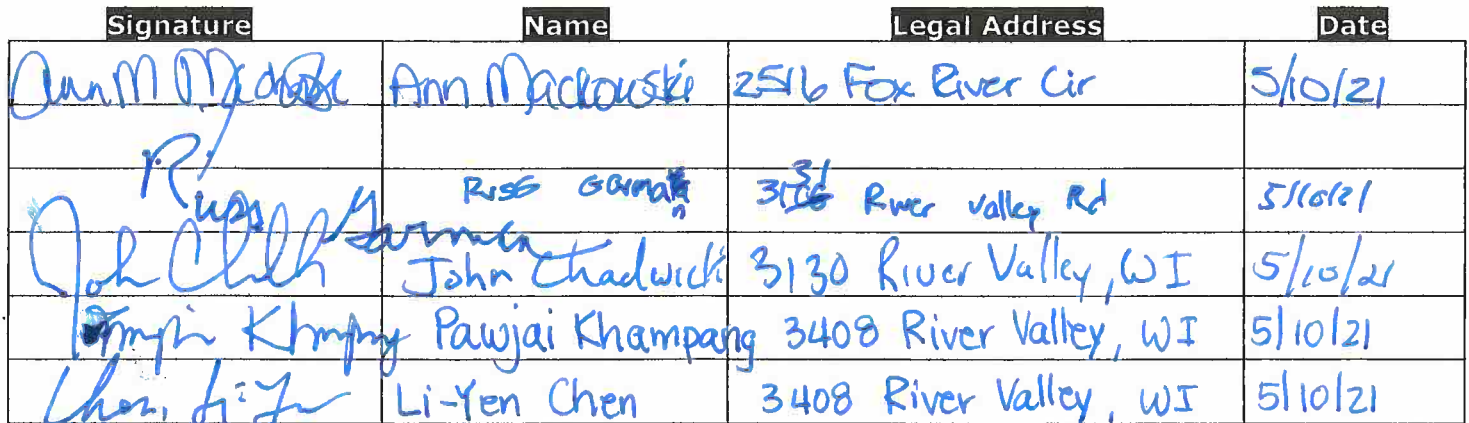 Signature Name Legal Address Date
Ann M Mackowski Ann Mackowski 2516 Fox River Cir 5/10/21
Russ Garman Russ Garman River Valley Rd 5/10/21
John Chadwick 3130 River Valley, WI 5/10/21
Khampang Pawjai Khampang 3408 River Valley, WI 5/10/21
Chen, Li-Yen Li-Yen Chen 3408 River Valley, WI 5/10/21